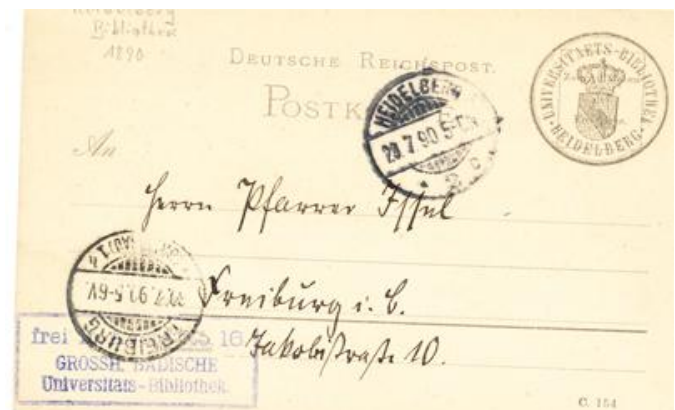 Heidelberg
Bibliothek
1890
DEUTSCHE REICHSPOST.
POSTK
UNIVERSITAETS-BIBLIOTHEK
HEIDELBERG
HEIDELBERG
20 7 90 5-
2 c
An
Herrn Pfarrer Issel
Freiburg i. B.
Jakobistraße 10.
FREIBURG
7.90.5-6V.
frei 16
GROSSH. BADISCHE
Universitäts-Bibliothek.
C. 154